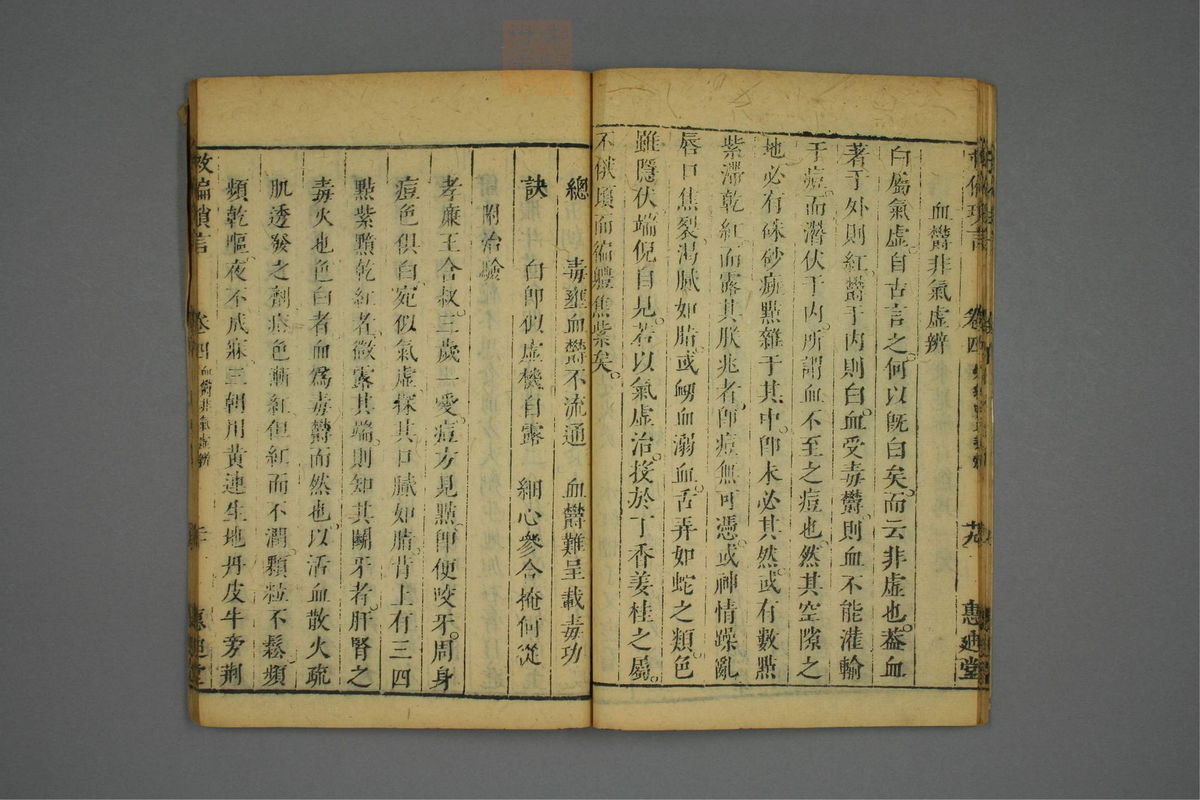 血欝非氣虛辨
白屬氣虛。自古言之。何以旣白矣。而云非虛也。蓋血
著于外則紅。欝于內則白。血受毒欝。則血不能灌輸
于痘。而潛伏于內。所謂血不至之痘也。然其空隙之
地。必有硃砂痲點雜于其中。卽未必其然。或有數點
紫滯乾紅而露其朕兆者。卽痘無可憑。或神情躁亂
唇口焦裂。渴膩如腊。或衂血溺血。舌弄如蛇之類。色
雖隱伏。端倪自見。若以氣虛治。投於丁香姜桂之屬。
不俟頃而編體焦紫矣。
總 毒壅血欝不流通 血欝難呈載毒功
訣 白卽似虛機自露 細心參合掩何從
附治驗
孝廉王合叔。三歲一愛。痘方見點。卽便咬牙。周身
痘色俱白。宛似氣虛。探其口膩如腊。背上有三四
點紫黯乾紅者。微露其端。則知其鬬牙者。肝腎之
毒火也。色白者。血爲毒欝而然也。以活血散火疏
肌透發之劑。痘色漸紅。但紅而不潤。顆粒不鬆。頻
頻乾嘔。夜不成寐。三朝用黃連生地丹皮牛蒡荆
卷四 血欝非氣虛辨
惠迪堂